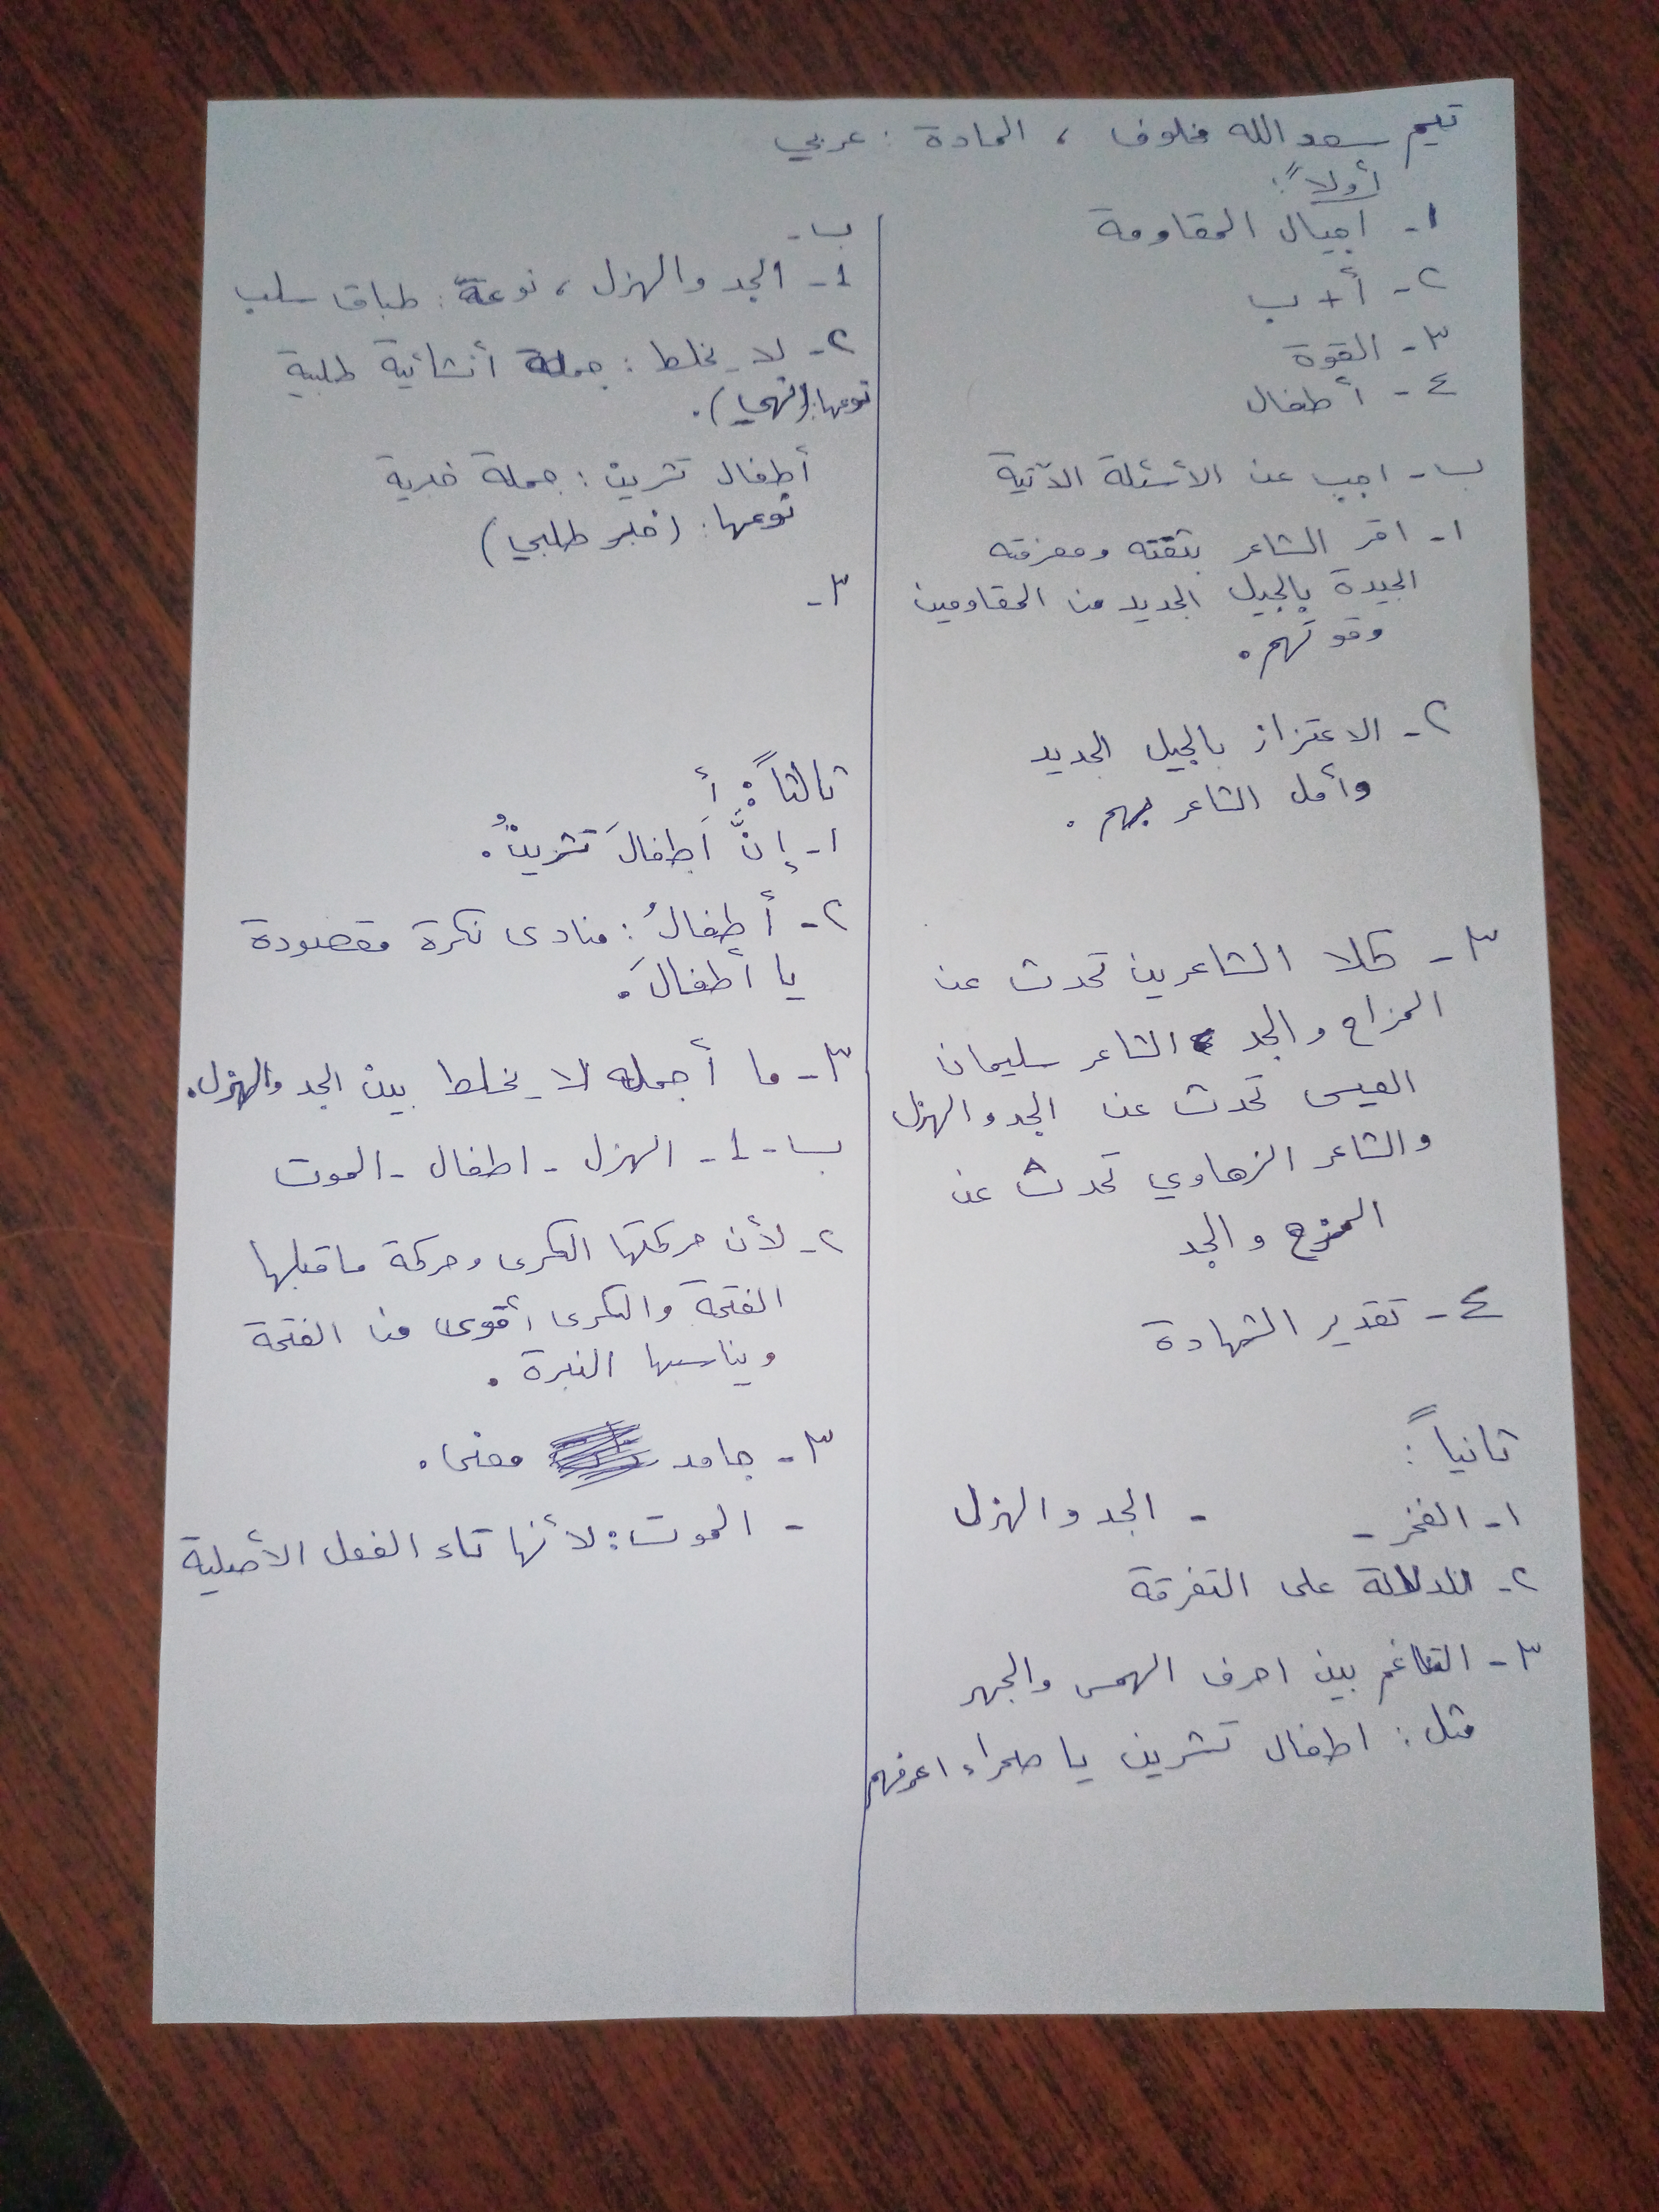 تيم سعد الله مخلوف ، المادة : عربي
أولاً :
١- اجيال المقاومة
٢- أ + ب
٣- القوة
٤- أطفال
ب- اجب عن الأسئلة الآتية
١- اقر الشاعر بثقته ومعرفته
الجيدة بالجيل الجديد من المقاومين
وقوتهم .
٢- الاعتزاز بالجيل الجديد
وأمل الشاعر بهم .
٣- كلا الشاعرين تحدث عن
المزاح والجد الشاعر سليمان
العيسى تحدث عن الجد والهزل
والشاعر الزهاوي تحدث عن
المزح والجد
٤- تقدير الشهادة
ثانياً :
١- الفخر - - الجد والهزل
٢- للدلالة على التفرقة
٣- التناغم بين احرف الهمس والجهر
مثل : اطفال تشرين يا صحراء اعرفهم
ب-
1- الجد والهزل ، نوعه : طباق سلب
٢- لا يخلط : جملة أنشائية طلبية
نوعها : (نهي) .
أطفال تشرين : جملة خبرية
نوعها : (خبر طلبي)
٣-
ثالثاً : أ
١- إنَّ أطفالَ تشرينُ .
٢- أطفالُ : منادى نكرة مقصودة
يا أطفالَ .
٣- ما أجمله لا يخلط بين الجد والهزل .
ب- 1- الهزل - اطفال - الموت
٢- لأن حركتها الكسرى وحركة ما قبلها
الفتحة والكسرى أقوى من الفتحة
ويناسبها النبرة .
٣- جامد معنى .
- الموت : لأنها تاء الفعل الأصلية